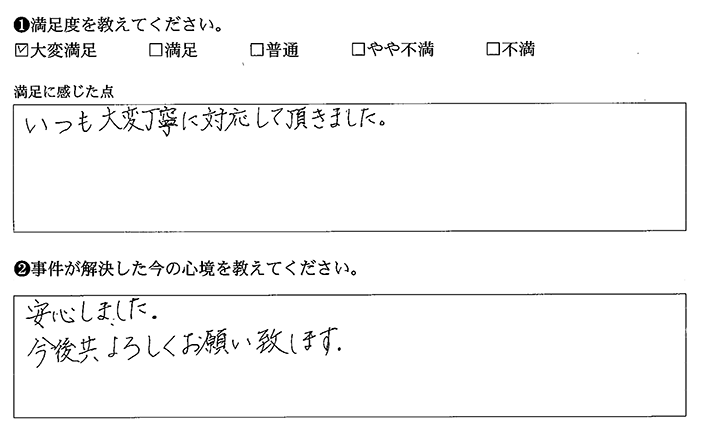 ❶満足度を教えてください。
☑大変満足 □満足 □普通 □やや不満 □不満
満足に感じた点
いつも大変丁寧に対応して頂きました。
❷事件が解決した今の心境を教えてください。
安心しました.
今後共よろしくお願い致します.